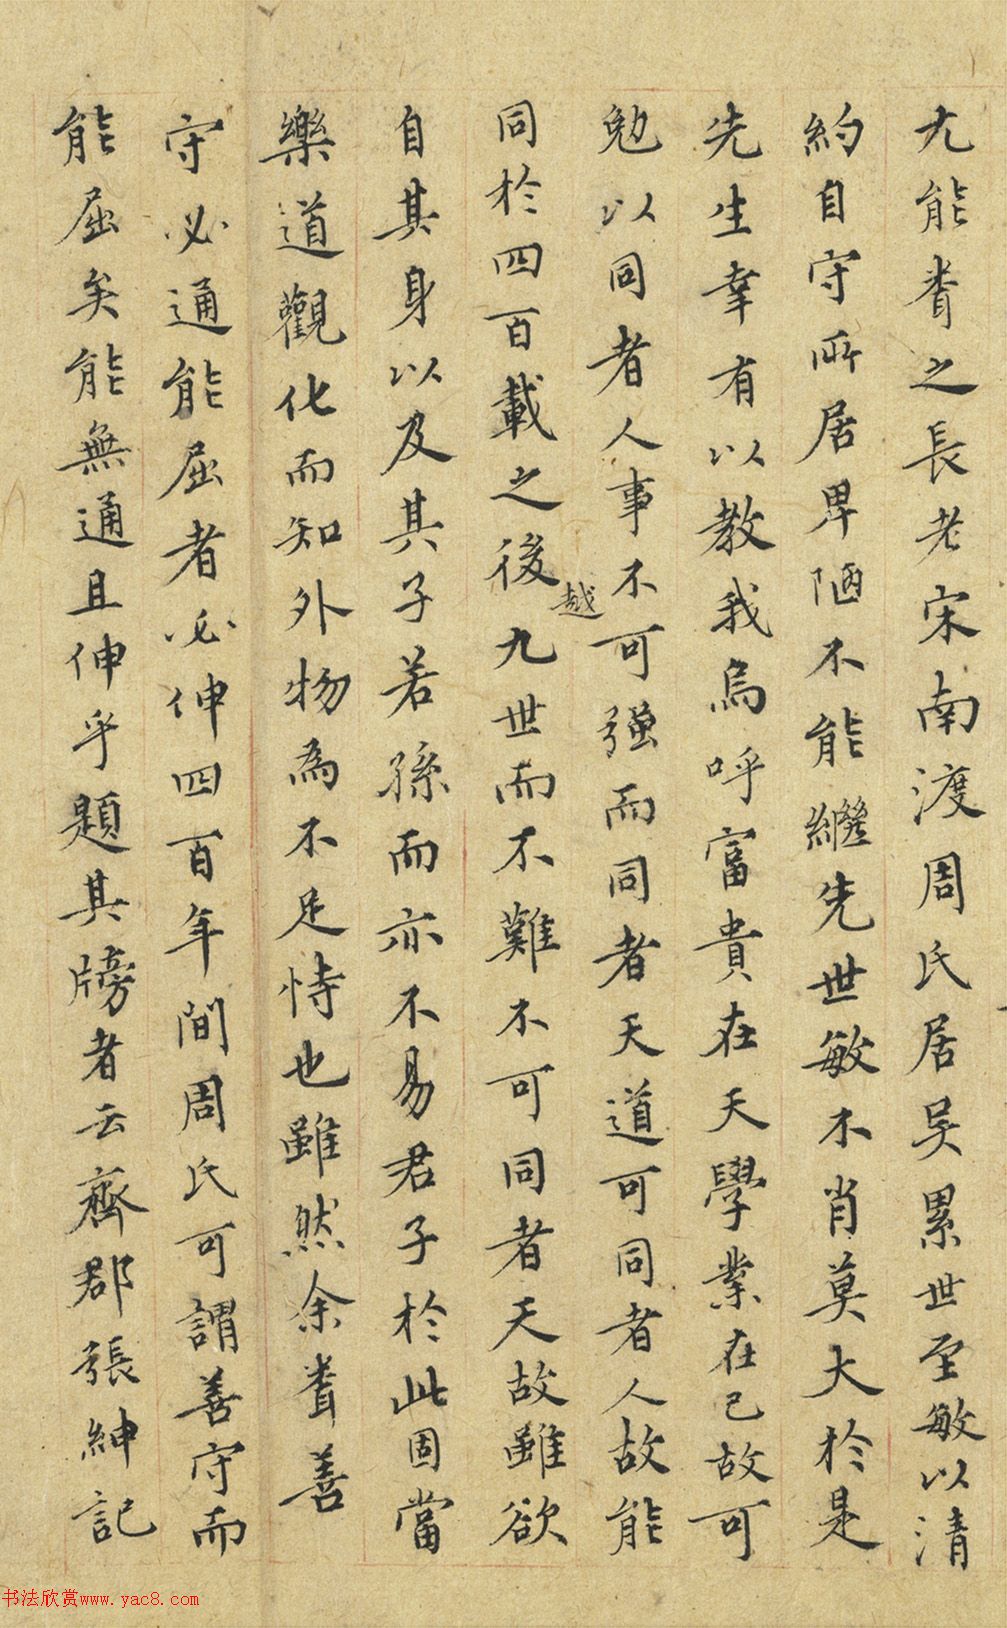 尤能耆之長老宋南渡周氏居吴累世至敏以清
約自守所居卑陋不能繼先世敏不肖莫大於是
先生幸有以教我烏呼富貴在天學業在己故可
勉以同者人事不可強而同者天道可同者人故能
同於四百載之後越九世而不難不可同者天故雖欲
自其身以及其子若孫而亦不易君子於此固當
樂道觀化而知外物為不足恃也雖然余耆善
守必通能屈者必伸四百年間周氏可謂善守而
能屈矣能無通且伸乎題其牓者云齊郡張紳記
书法欣赏www.yac8.com